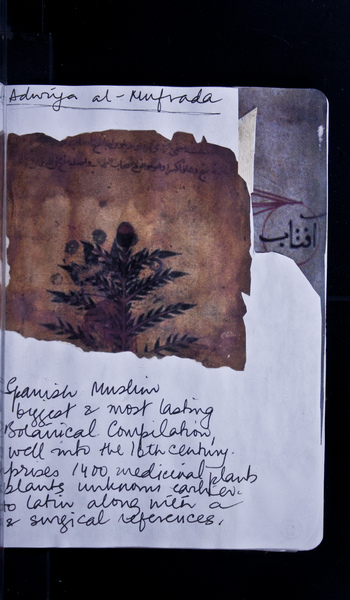 Adwiya al-Mufrada
افتاب
Spanish Muslim
biggest & most lasting
Botanical Compilation,
well into the 16th century.
prises 1400 medicinal plants
plants unknown earlier.
to latin along with a
& surgical references.